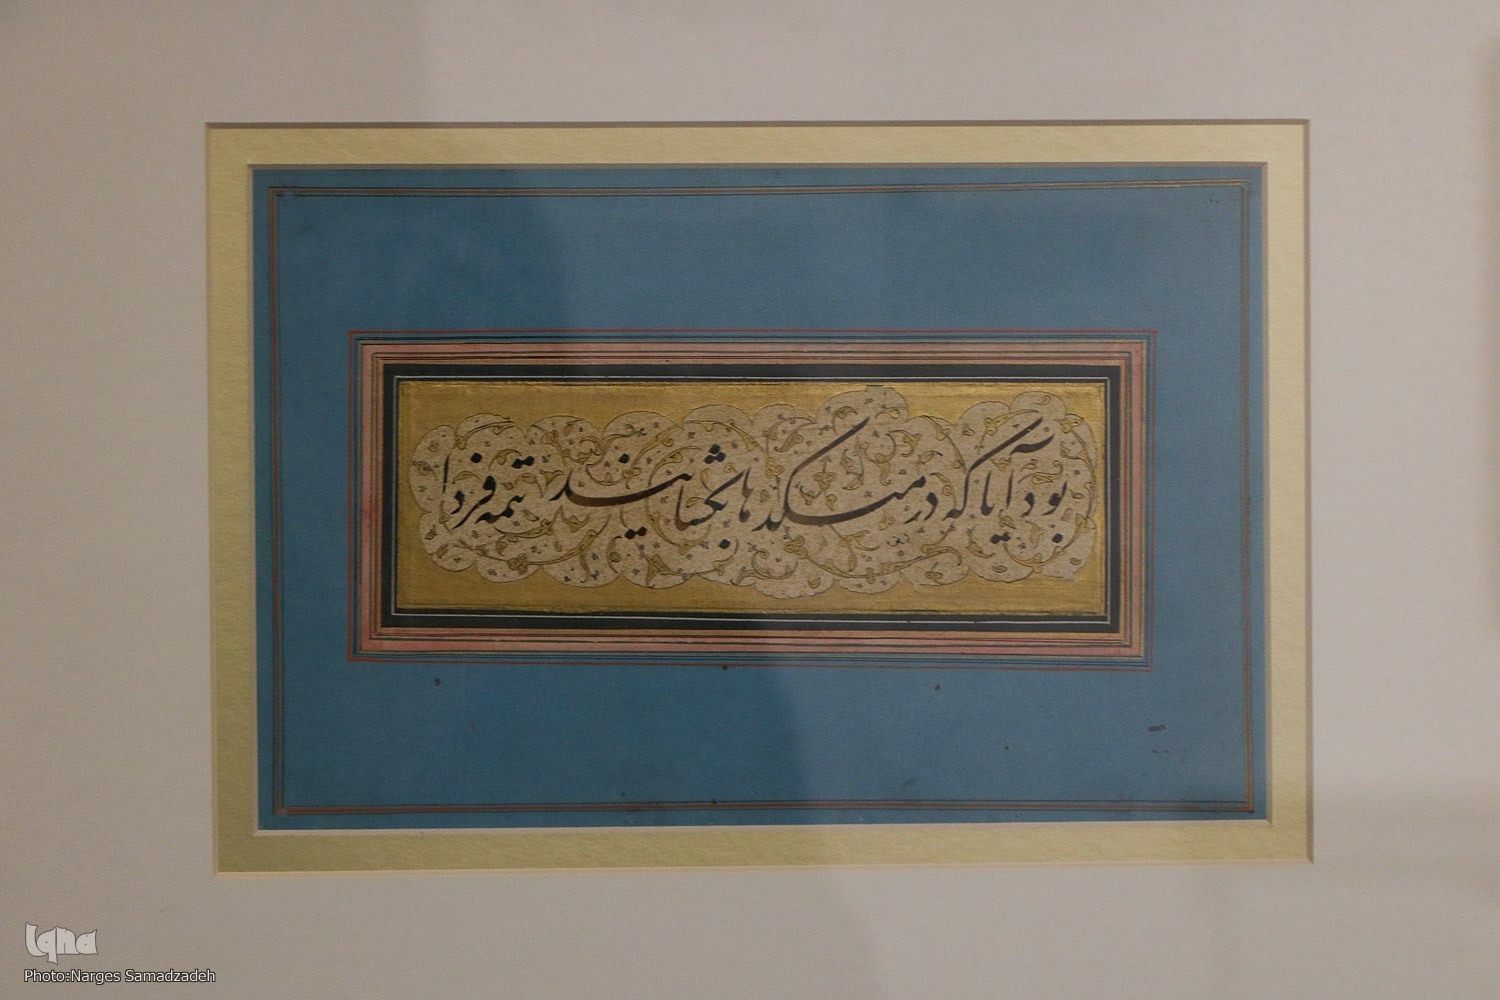 بود آیا که در میکدها بگشایند تتمه فردا
Iqna
Photo:Narges Samadzadeh